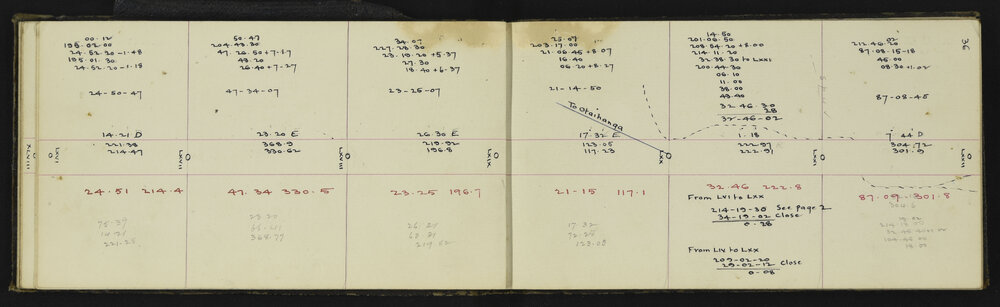 36
00.12
195.02.00
24.52.20-1.48
195.01.30
24.52.20-1.18
24-50-47
14.21 D
221.38
214.47
XLVIII
LXVI
24.51 214.4
50.47
204.43.30
47.26.50+7-17
49.20
26.40+7-27
47-34-07
23.20 E
368.9
330.62
LXVII
47.34 330.5
34.07
227.23.30
23.19.20+5.37
27.30
19.40+6.37
23-25-07
26.30 E
219.92
196.8
LXVIII
LXIX
23-25 196.7
25.07
203.17.00
21.06.45+8.07
16.40
06.20+8.27
21-14-50
To Otaihanga
17-32 E
123.05
117.23
LXX
21-15 117.1
14.50
201.06.50
208.54.20+8.00
214.11.20
32.38.30 to LXXI
200.44.30
06.10
11.00
38.00
49.40
32.46.30
28
32-46-02
1.18
222.97
222.91
LXXI
32.46 222.8
From LVI to LXX
214-19-30 See page 2
34-19-02 close
0.28
From LIV to LXX
209-02-20
29-02-12 close
0-08
02
212.46.20
87.08.15-18
45.00
08.30+1.02
87-08-45
7 44 D
304.72
301.9
LXXII
87.09-301.8